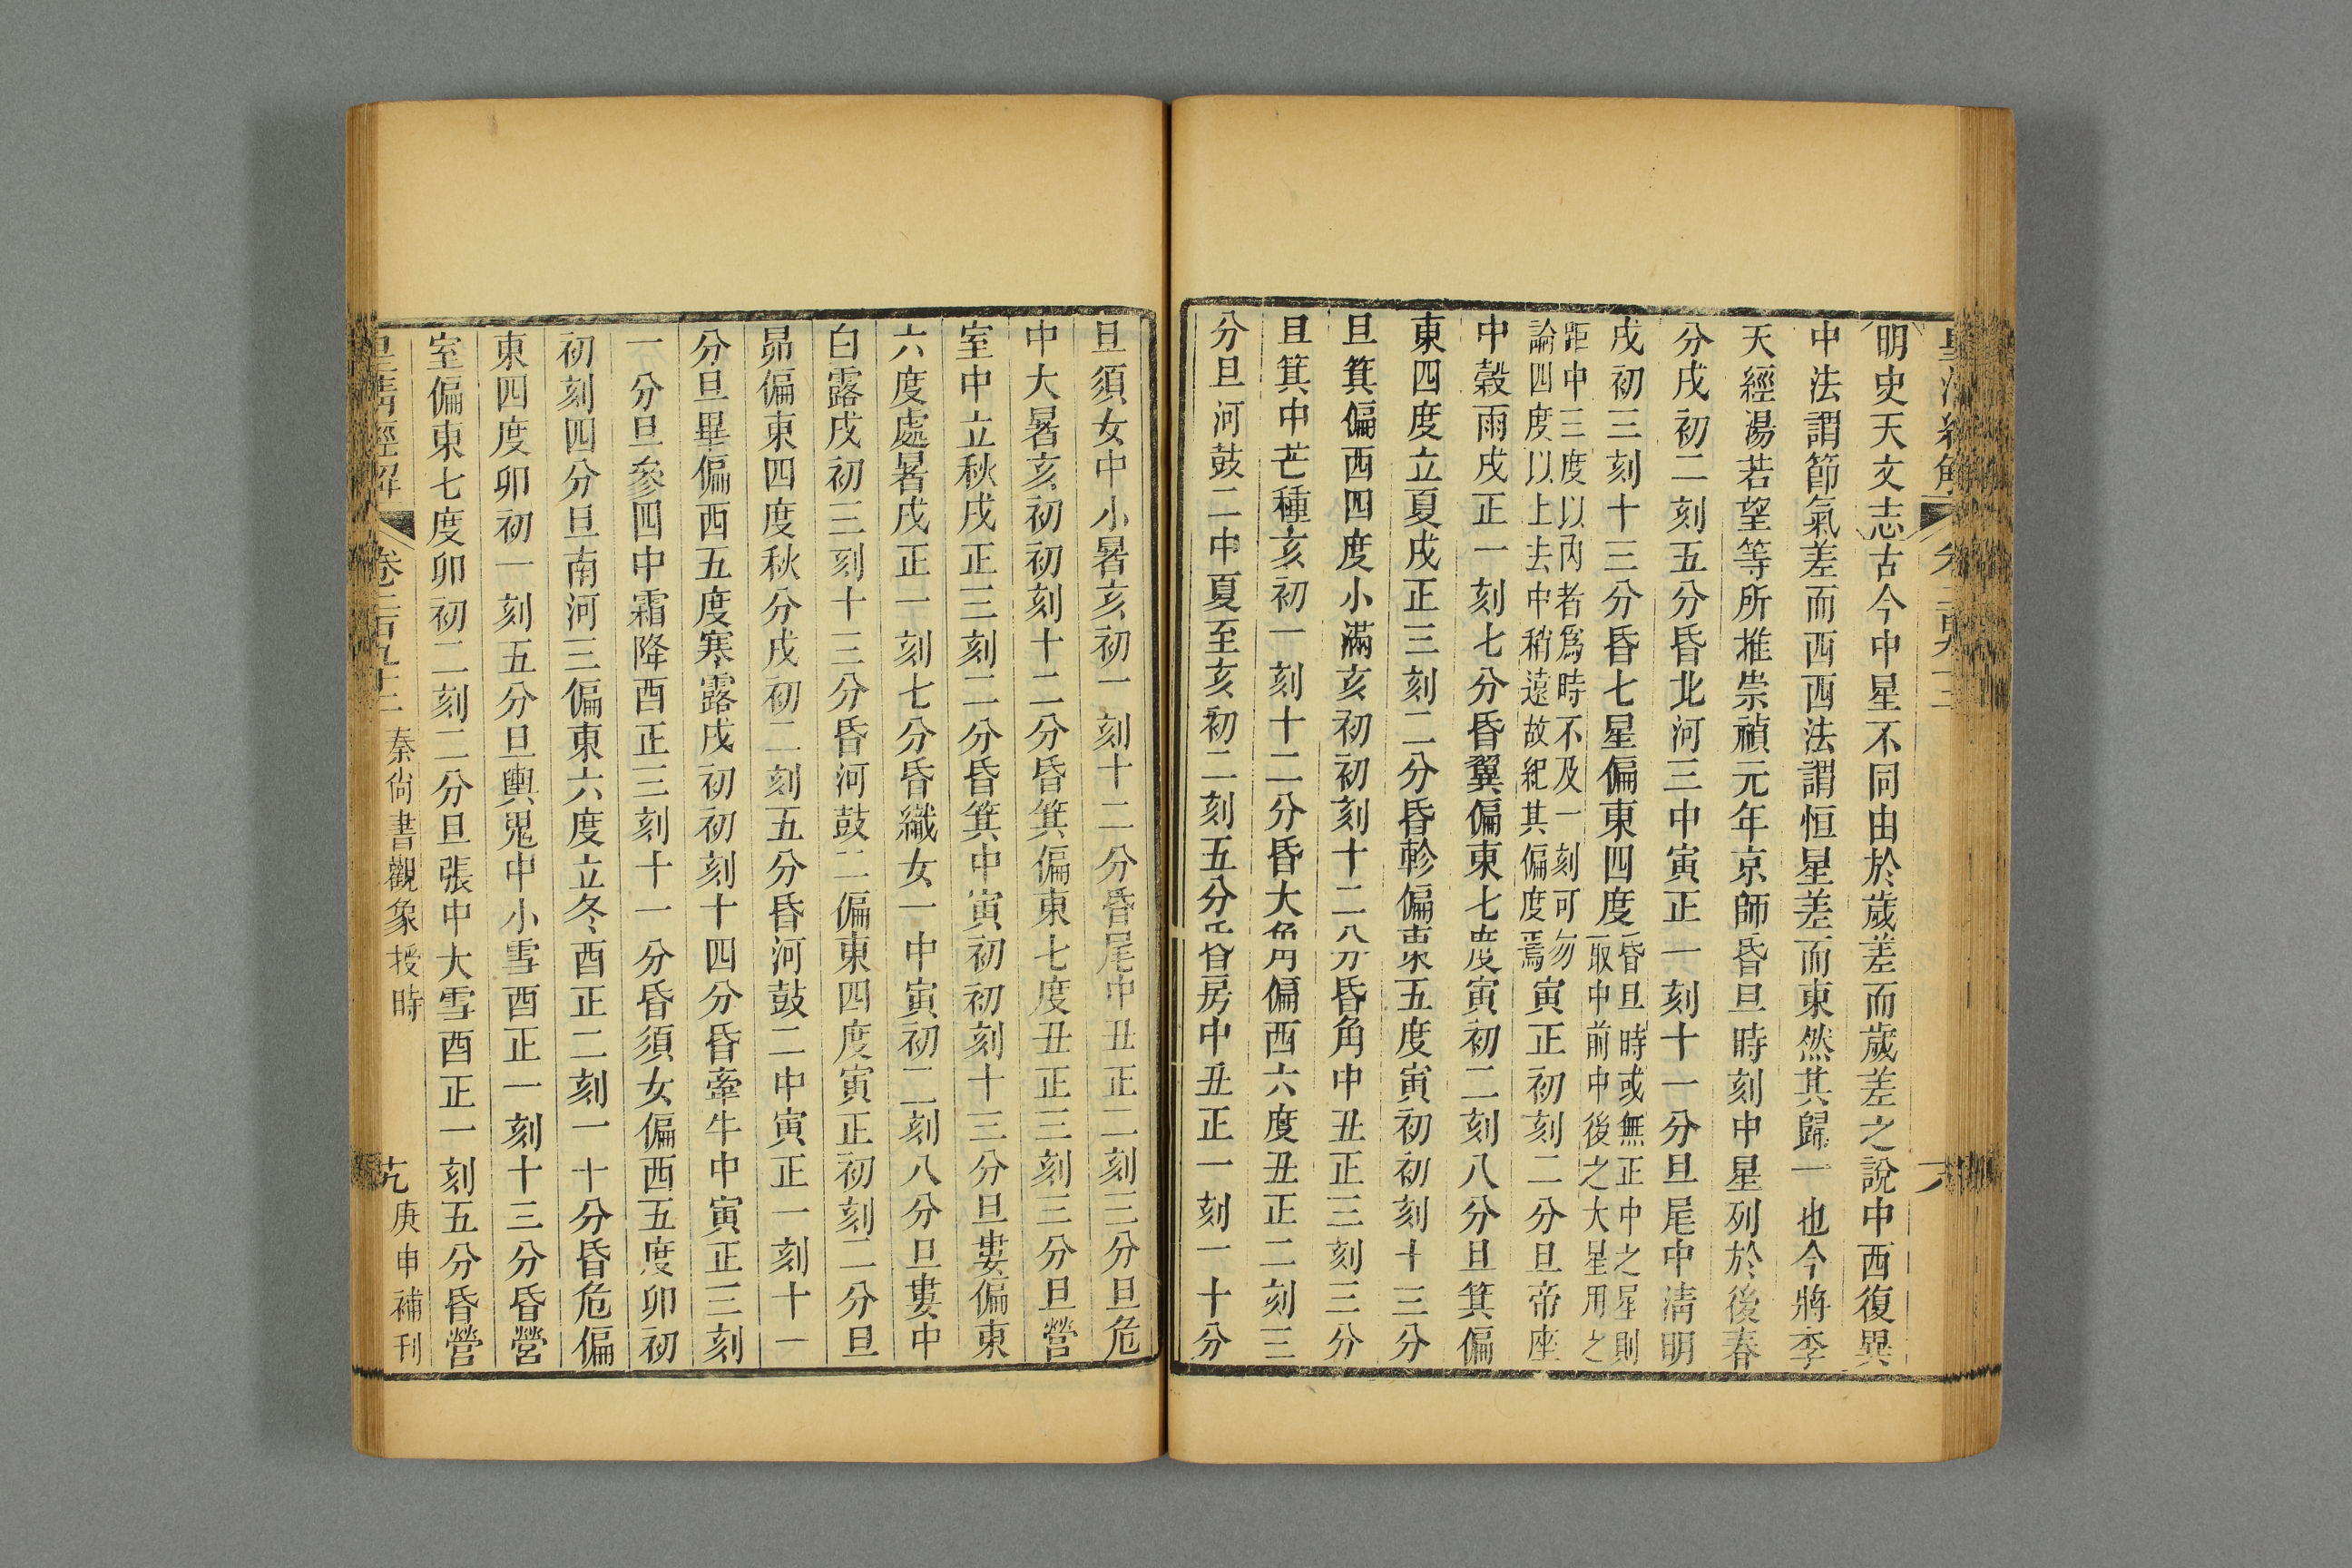 明史天文志古今中星不同由於歲差而歲差之說中西復異
中法謂節氣差而西西法謂恒星差而東然其歸一也今將李
天經湯若望等所推崇禎元年京師昏旦時刻中星列於後春
分戌初二刻五分昏北河三中寅正一刻十一分旦尾中清明
戌初三刻十三分昏七星偏東四度昏旦時或無正中之星則取中前中後之大星用之
距中三度以內者爲時不及一刻可勿論四度以上去中稍遠故紀其偏度焉寅正初刻二分旦帝座
中穀雨戌正一刻七分昏翼偏東七度寅初二刻八分旦箕偏
東四度立夏戌正三刻二分昏軫偏東五度寅初初刻十三分
旦箕偏西四度小滿亥初初刻十二分昏角中丑正三刻三分
旦箕中芒種亥初一刻十二分昏大角偏西六度丑正二刻三
分旦河鼓二中夏至亥初二刻五分昏房中丑正一刻一十分
旦須女中小暑亥初一刻十二分昏尾中丑正二刻三分旦危
中大暑亥初初刻十二分昏箕偏東七度丑正三刻三分旦營
室中立秋戌正三刻二分昏箕中寅初初刻十三分旦婁偏東
六度處暑戌正一刻七分昏織女一中寅初二刻八分旦婁中
白露戌初三刻十三分昏河鼓二偏東四度寅正初刻二分旦
昴偏東四度秋分戌初二刻五分昏河鼓二中寅正一刻十一
分旦畢偏西五度寒露戌初初刻十四分昏牽牛中寅正三刻
一分旦參四中霜降酉正三刻十一分昏須女偏西五度卯初
初刻四分旦南河三偏東六度立冬酉正二刻一十分昏危偏
東四度卯初一刻五分旦輿鬼中小雪酉正一刻十三分昏營
室偏東七度卯初二刻二分旦張中大雪酉正一刻五分昏營
皇清經解 卷三百九十三 秦尙書觀象授時 庚申補刊